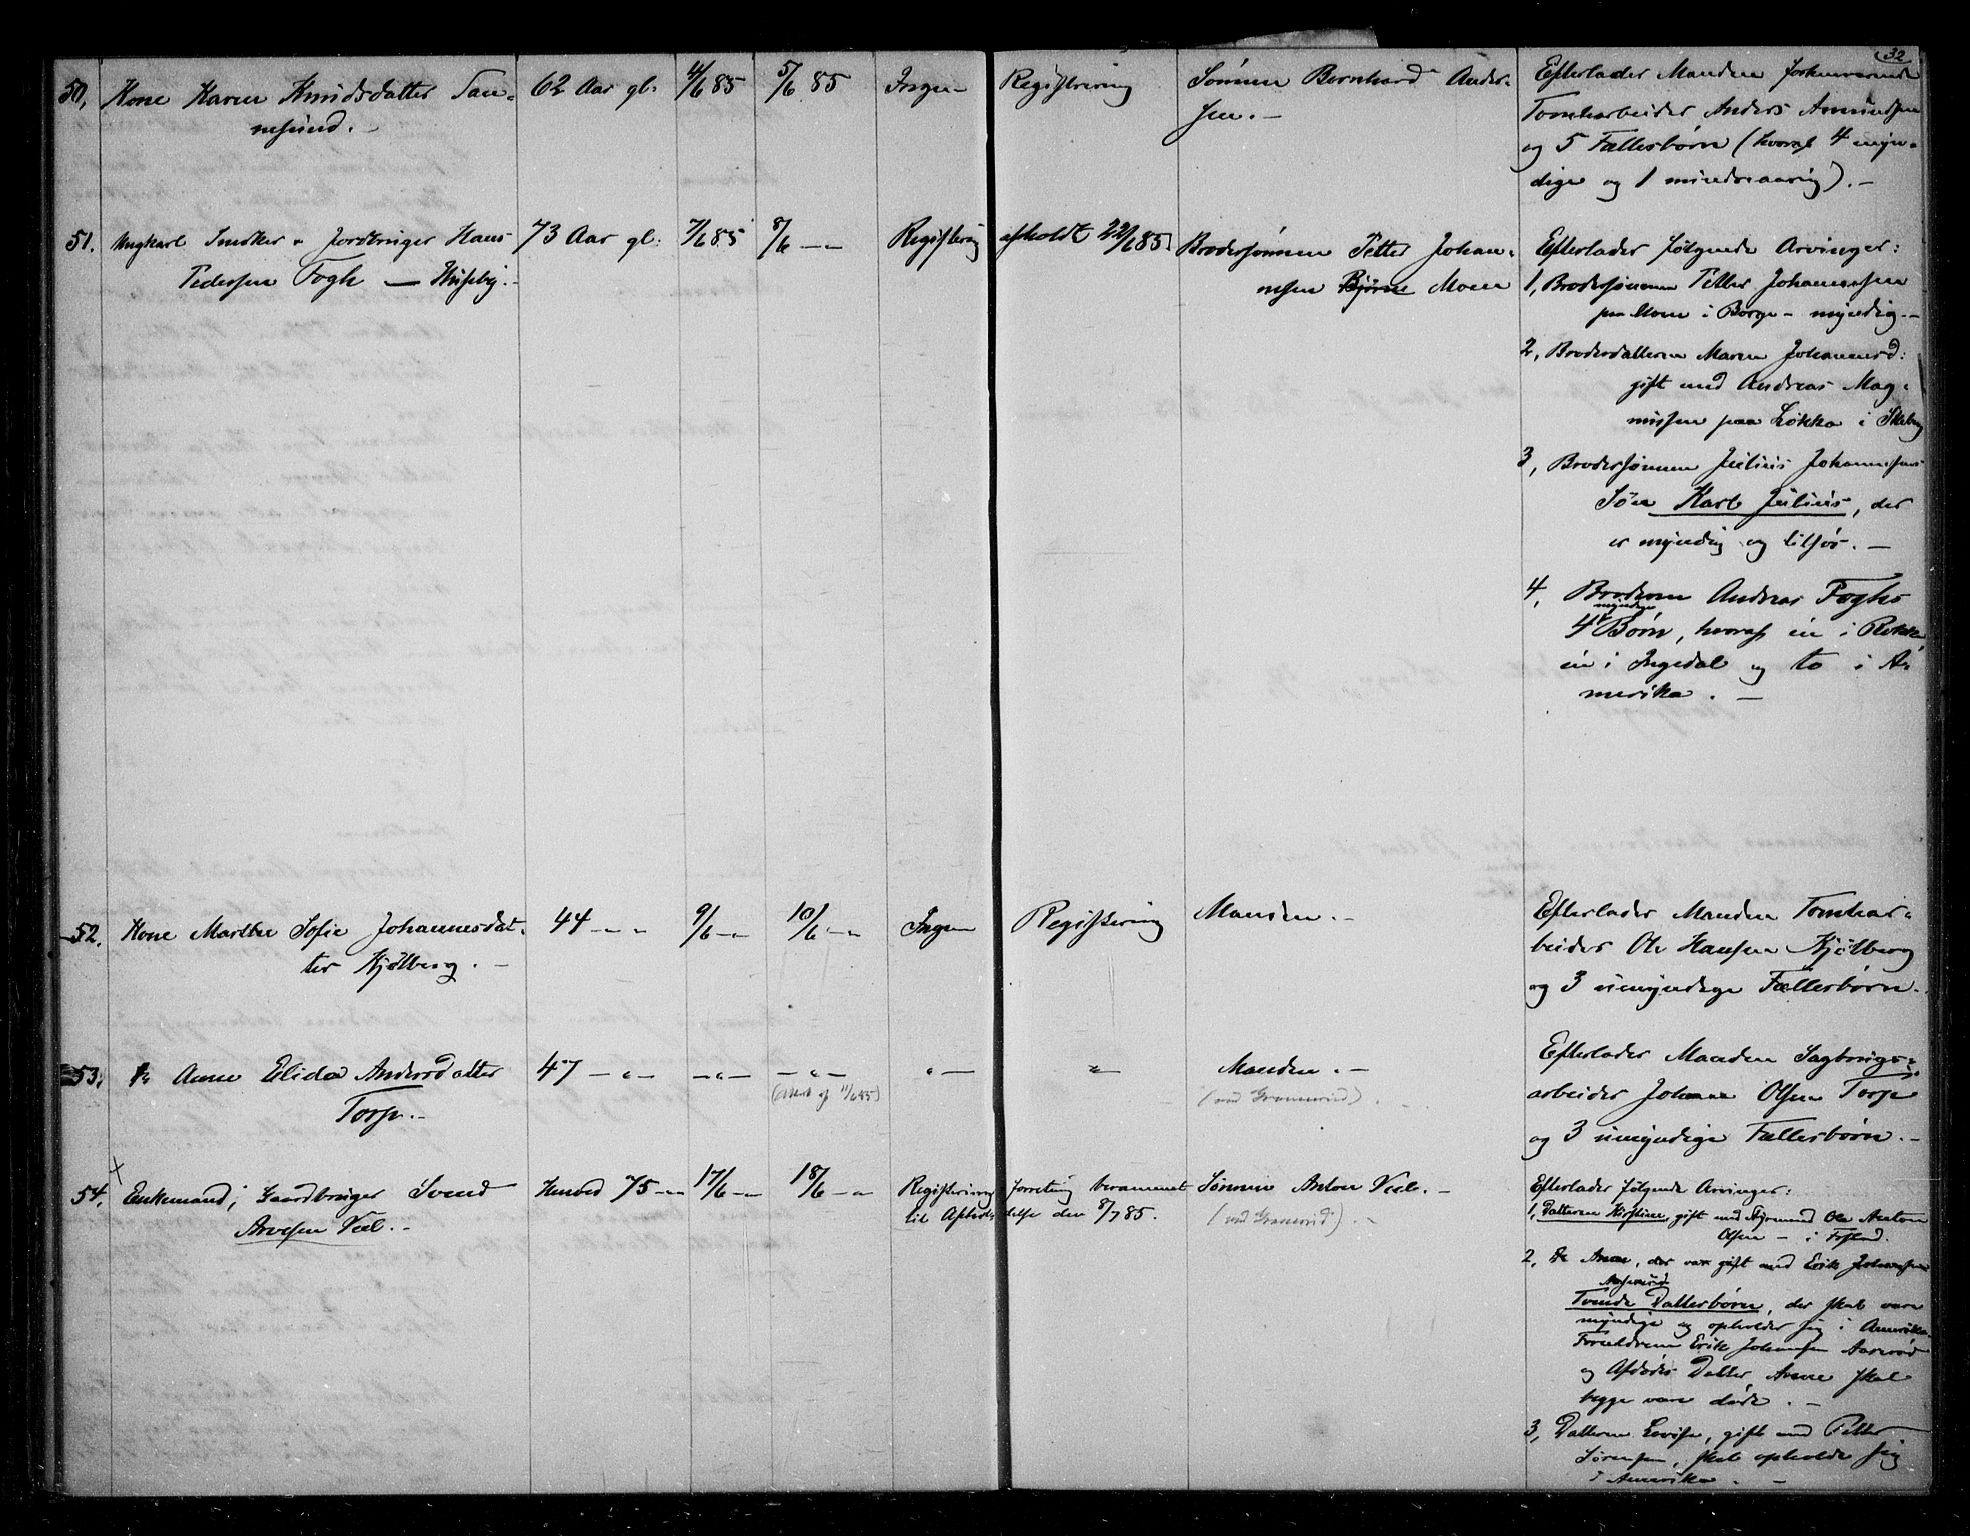 32
50, Kone Karen Knudsdatter San=
nesund. –
62 Aar gl.
4/6 85
5/6 85
Ingen
Registrering
Sønnen Bernhard Ander=
sen. –
Efterlader Manden forhenværende
Tomtearbeider Anders Amundsen
og 5 Fællesbørn (hvoraf 4 myn=
dige og 1 mindreaarig). –
51. Ungkarl Snedker & Jordbruger Hans
Pedersen Fogh — Huseby. –
73 Aar gl:
7/6 85
8/6 – „ –
Registrering
afholdt 22/6 85.
Brodersønnen Petter Johan=
nesen Bjørne Moen
Efterlader følgende Arvinger:
1, Brodersønnen Petter Johannesen
paa Moen i Borge – myndig. –
2, Broderdatteren Maren Johannesd:
gift med Andreas Mag=
nussen paa Løkka i Skeberg
3, Brodersønnen Julius Johannesens
Søn Karl Julius, der
er myndig og tilhør. –
4, Broderen Andreas Foghs
myndige
4 Børn, hvoraf en i Rokke
en i Ingedal og to i A=
merika. –
52. Kone Marthe Sofie Johannesdat=
ter Kjølberg. –
44 – „ –
9/6 – „
10/6 – „ –
Ingen
Registrering
Manden. –
Efterlader Manden Tomtear=
beider Ole Hansen Kjølberg
og 3 umyndige Fællesbørn.
53. do Anne Elida Andersdatter
Torp. –
47 – „ –
– „ –
– „ –
(Attest af 11/6 85)
„ –
„ –
Manden. –
(ved Grannerud).
Efterlader Manden Sagbrugs=
arbeider Johan Olsen Torp
og 3 umyndige Fællesbørn. –
54. Enkemand, Gaardbruger Svend
Arvesen Veel. –
Henved 75 – „ –
17/6 – „
18/6 – „
Registrerings forretning berammet
til Afholdelse den 8/7 85.
Sønnen Anton Veel. –
(ved Grannerud).
Efterlader følgende Arvinger:
1, Datteren Kirstine, gift med Styrmand Ole Anton
Olsen – i Fosland.
2, do Anne, der var gift med Erik Johansen
Aaserød
Tvende Datterbørn, der skal være
myndige og opholder sig i Amerika.
Forældrene Erik Johansen Aaserød
og Afdødes Datter Anne skal
begge være døde. –
3, Datteren Lovise, gift med Petter
Sørensen, skal opholde sig
i Amerika. –